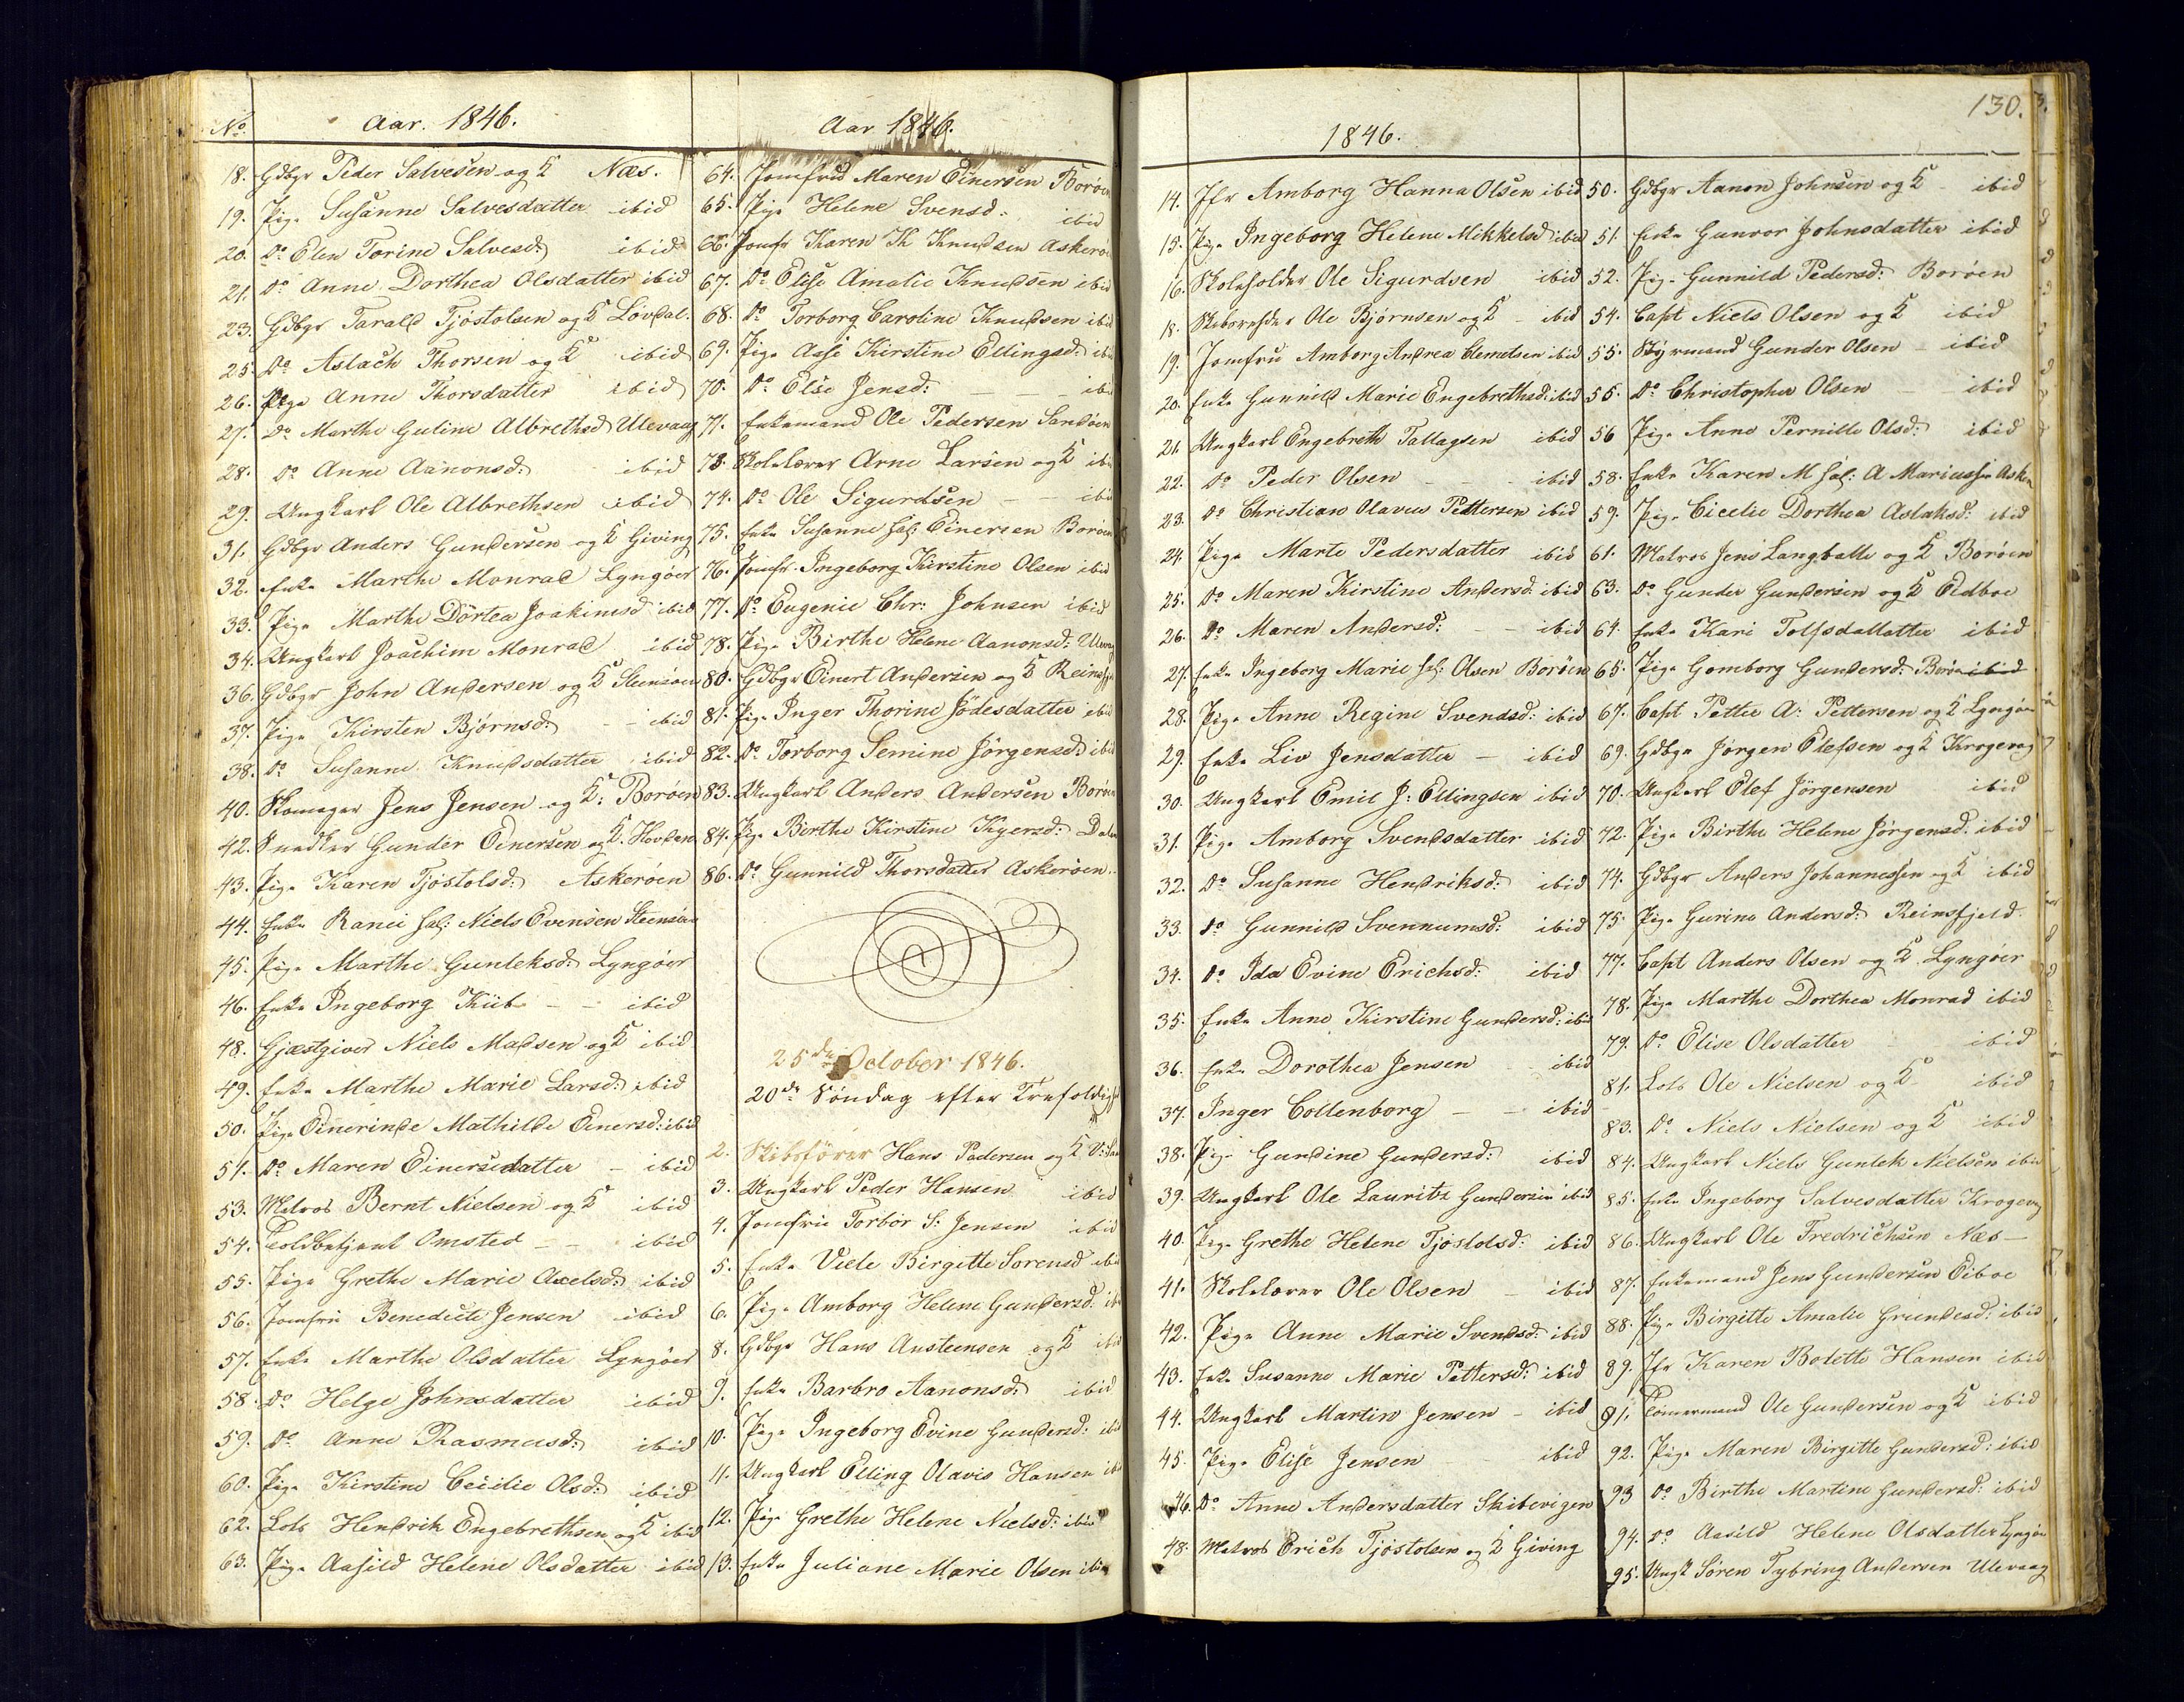 No Aar. 1846.
18. Gdbgr Peder Salvesen og K Næs.
19. Pige Susanne Salvesdatter ibid
20. Do Elen Torine Salvesd: ibid
21. Do Anne Dorthea Olsdatter ibid
23. Gdbgr Tarald Tjöstolsen og K Lövdal.
25. Do Aslach Thorsen og K ibid
26. Pige Anne Thorsdatter ibid
27. Do Marthe Guline Albrethsd Ulevaag
28. Do Anne Aanonsd: ibid
29. Ungkarl Ole Albrethsen ibid
31. Gdbgr Anders Gundersen og K Giving
32. Enke Marthe Monrad Lyngöer
33. Pige Marthe Dörtea Joakimsd ibid
34. Ungkarl Joachim Monrad ibid
36. Gdbgr John Andersen og K Steensöen
37. Pige Kirsten Björnsd: - ibid
38. Do Susanne Knudsdatter ibid
40. Skomager Jens Jensen og K: Boröen
42. Snedker Gunder Einersen og K. Hovden
43. Pige Karen Tjöstolsd: Askeröen
44. Enke Ranei sal: Niels Evensen Steensöen
45. Pige Marthe Gunleksd: Lyngöer
46. Enke Ingeborg Kiib - - ibid
48. Gjæstgiver Niels Madsen og K ibid
49. Enke Marthe Marie Larsd: ibid
50. Pige Einerinde Mathilde Einersd: ibid
51. Do Maren Einersdatter - ibid
53. Matros Bernt Nielsen og K ibid
54. Toldbetjent Omsted - - ibid
55. Pige Grethe Marie Axelsd: ibid
56. Jomfru Benedicte Jensen ibid
57. Enke Marthe Olsdatter Lyngöer
58. Do Helge Johnsdatter ibid
59. Do Anne Rasmusd: ibid
60. Pige Kirstine Cecilie Olsd: ibid
62. Lods Hendrik Engebrethsen og K ibid
63. Pige Aasild Helene Olsdatter ibid
Aar 1846.
64. Jomfrue Maren Einersen Boröen
65. Pige Helene Svensd: ibid
66. Jomfr Karen K Knudsen Askeröe
67. Do Elise Amalie Knudsen ibid
68. Do Torborg Caroline Knudsen ibid
69. Pige Aase Kirstine Ellingsd: ibid
70. Do Else Jensd: - - ibid
71. Enkemand Ole Pedersen Sandöen
73. Skolelærer Arne Larsen og K ibid
74. Do Ole Sigurdsen - - ibid
75. Enke Susanne sal: Einersen Boröen
76. Jomfr. Ingeborg Kirstine Olsen ibid
77. Do Eugenie Chr: Johnsen ibid
78. Pige Birthe Helene Aanonsd: Ulevaag
80. Gdbgr Einert Andersen og K
81. Pige Inger Thorine Jödesdatter ibid
82. Do Torborg Semine Jörgensd: ibid
83. Ungkarl Anders Andersen Boröen
84. Pige Birthe Kirstine Kyersd:
86. Do Gunnild Thorsdatter Askeröen.
25de October 1846.
20de Söndag efter Trefoldigh
2. Skibsförer Hans Pedersen og K
3. Ungkarl Peder Hansen ibid
4. Jomfrue Torbor S: Jensen ibid
5. Enke Viele Birgitte Sorensd ibid
6. Pige Amborg Helene Gundersd: ibid
8. Gdbgr Hans Austeensen og K ibid
9. Enke Barbro Aanonsd: ibid
10. Pige Ingeborg Evine Gundersd: ibid
11. Ungkarl Elling Olavis Hansen ibid
12. Pige Grethe Helene Nielsd: ibid
13. Enke Juliane Marie Olsen ibid
1846.
14. Jfr Amborg Hanna Olsen ibid
15. Pige Ingeborg Helene Mikkelsd ibid
16. Skoleholder Ole Sigurdsen ibid
18. Ole Björnsen og K - ibid
19. Jomfru Amborg Andrea Clemetsen ibid
20. Enke Gunnild Marie Engebrethsd: ibid
21. Ungkarl Engebreth Tallagsen ibid
22. Do Peder Olsen - - - ibid
23. Do Christian Olavus Pettersen ibid
24. Pige Marte Pedersdatter ibid
25. Do Maren Kirstine Andersd: ibid
26. Do Maren Andersd: - - ibid
27. Enke Ingeborg Marie sal: Olsen Boröen
28. Pige Anne Regine Svendsd: ibid
29. Enke Liv Jensdatter - ibid
30. Ungkarl Emil J: Ellingsen ibid
31. Pige Amborg Svendsdatter ibid
32. Do Susanne Hendriksd: ibid
33. Do Gunnild Svennumsd: ibid
34. Do Ida Evine Erichsd: ibid
35. Enke Anne Kirstine Gundersd: ibid
36. Enke Dorothea Jensen ibid
37. Inger Collenborg - - ibid
38. Pige Gundine Gundersd: ibid
39. Ungkarl Ole Lauritz Gundersen ibid
40. Pige Grethe Helene Tjöstolsd: ibid
41. Skolelærer Ole Olsen - ibid
42. Pige Anne Marie Svendsd: ibid
43. Enke Susanne Marie Pettersd: ibid
44. Ungkarl Martin Jensen - ibid
45. Pige Elise Jensen ibid
46. Do Anne Andersdatter Skibevigen
48. Matros Erich Tjöstolsen og K Giving
130.
50. Gdbgr Aanon Johnsen og K - ibid
51. Enke Gunvor Johnsdatter ibid
52. Pige Gunnild Pedersd: Boröen
54. Capt Niels Olsen og K ibid
55. Styrmand Gunder Olsen - ibid
55. Do Christopher Olsen ibid
56 Pige Anne Pernille Olsd: ibid
58. Enke Karen M sal: A Mariussen Asker
59. Pige Cicelie Dorthea Aslaksd: ibid
61. Matros Jens Langballe og K Boröen
63. Do Gunder Gundersen og K Eidboe
64. Enke Kari ibid
65. Pige Gomborg Gundersd: Borö ibid
67. Capt Petter A: Pettersen og K Lyngöer
69. Gdbgr Jörgen Olefsen og K Krogevag
70. Ungkarl Olef Jörgensen ibid
72. Pige Birthe Helene Jörgensd: ibid
74. Gdbgr Anders Johannessen og K ibid
75. Pige Gurine Andersd: Reinsfjeld
77. Capt Anders Olsen og K Lyngöer
78. Pige Marthe Dorthea Monrad ibid
79. Do Elise Olsdatter - ibid
81. Lods Ole Nielsen og K - ibid
83. Do Niels Nielsen og K ibid
84. Ungkarl Niels Gunlek Nielsen ibid
85. Enke Ingeborg Salvesdatter Krogevag
86. Ungkarl Ole Fredrichsen Næs -
87. Enkemand Jens Gundersen Eiboe
88. Pige Birgitte Amalie Gundersd: ibid
89. Jfr Karen Botette Hansen ibid
91. Tömermand Ole Gundersen og K ibid
92. Pige Maren Birgitte Gundersd: ibid
93 Do Birthe Martine Gundersd: ibid
94. Do Aasild Helene Olsdatter Lyngöer
95. Ungk Sören Tybring Andersen Ulevaag